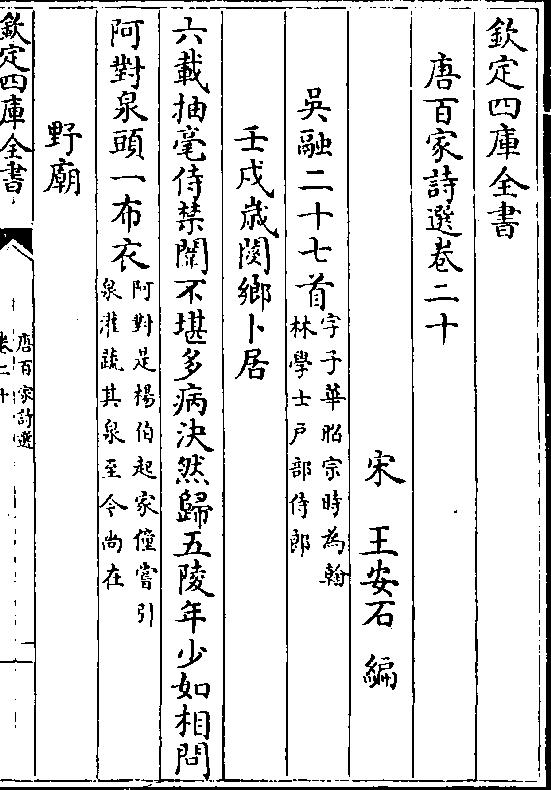 欽定四庫全書
唐百家詩選卷二十
宋　王安石　編
吳融二十七首
字子華昭宗時為翰
林學士戶部侍郎
壬戌歲閿鄉卜居
六載抽毫侍禁闈不堪多病決然歸五陵年少如相問
阿對泉頭一布衣
阿對是楊伯起家僮嘗引
泉灌蔬其泉至今尚在
野廟
欽定四庫全書
唐百家詩選
卷二十